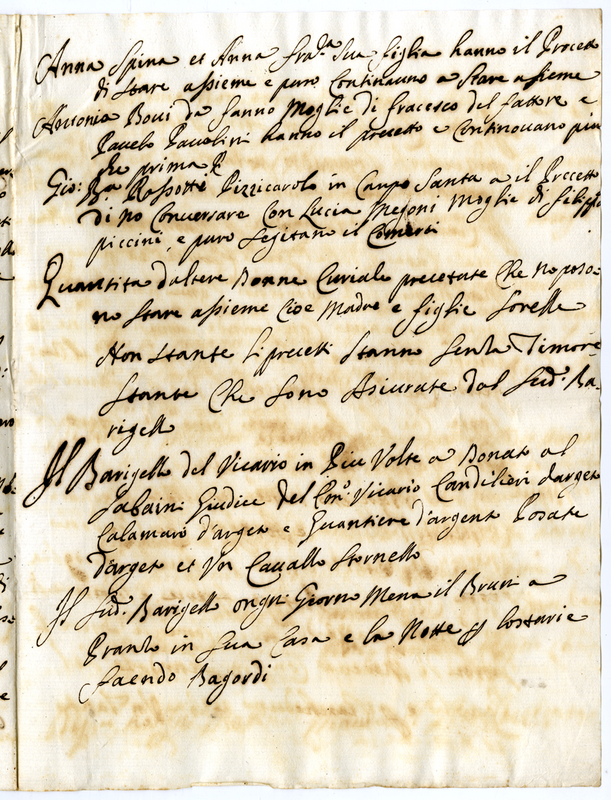 Anna Spina et Anna Sradª Sua figlia hanno il Precetto
di Stare assieme e puro Continauno a Stare assieme
Antonia Boui da fanno Moglie di fracesco del fattore e
Pauolo Pauolini hanno il precetto e Continouano piu
che prima
Gio: Bª Rossotti Pizzicarolo in Campo Santa a il Precetto
di no Conuersare Con Lucia Megoni Moglie di filippo
piccini, e puro Segitano il Comerti
Quantita daltere Donne Curiale precetate Che no poso=
no Stare assieme Cioe Madre e figlie Sorelle
Non Stante li precetti Stanno Senza Timore
Stante Che Sono Asicurate dal Sudº Ba=
rigello
Il Barigello del Vicario in Piu Volte a Donato al
Sabaini Giudice del Conº Vicario Candilieri dargeto
Calamaro d'argeto e Guantiere d'argento Posate
d'argeto et Un Cauallo Stornello
Il Sudº Barigello ongni Giorno Mena il Bruni a
Pranzo in Sua Casa e la Notte p lostarie
facendo Bagordi